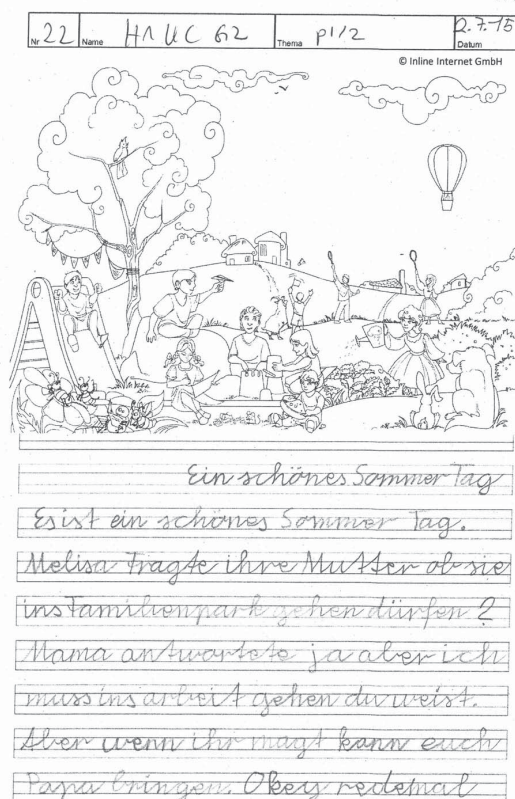 Nr 22 Name HA UC G2 Thema P1/2 Datum 2.7.15
© Inline Internet GmbH
Ein schönes Sommer Tag
Es ist ein schönes Sommer Tag.
Melisa Fragte ihre Mutter ob sie
ins Familienpark gehen dürfen ?
Mama antwortete ja aber ich
muss ins arbeit gehen du weist.
Aber wenn ihr magt kann euch
Papa bringen. Okey redemal